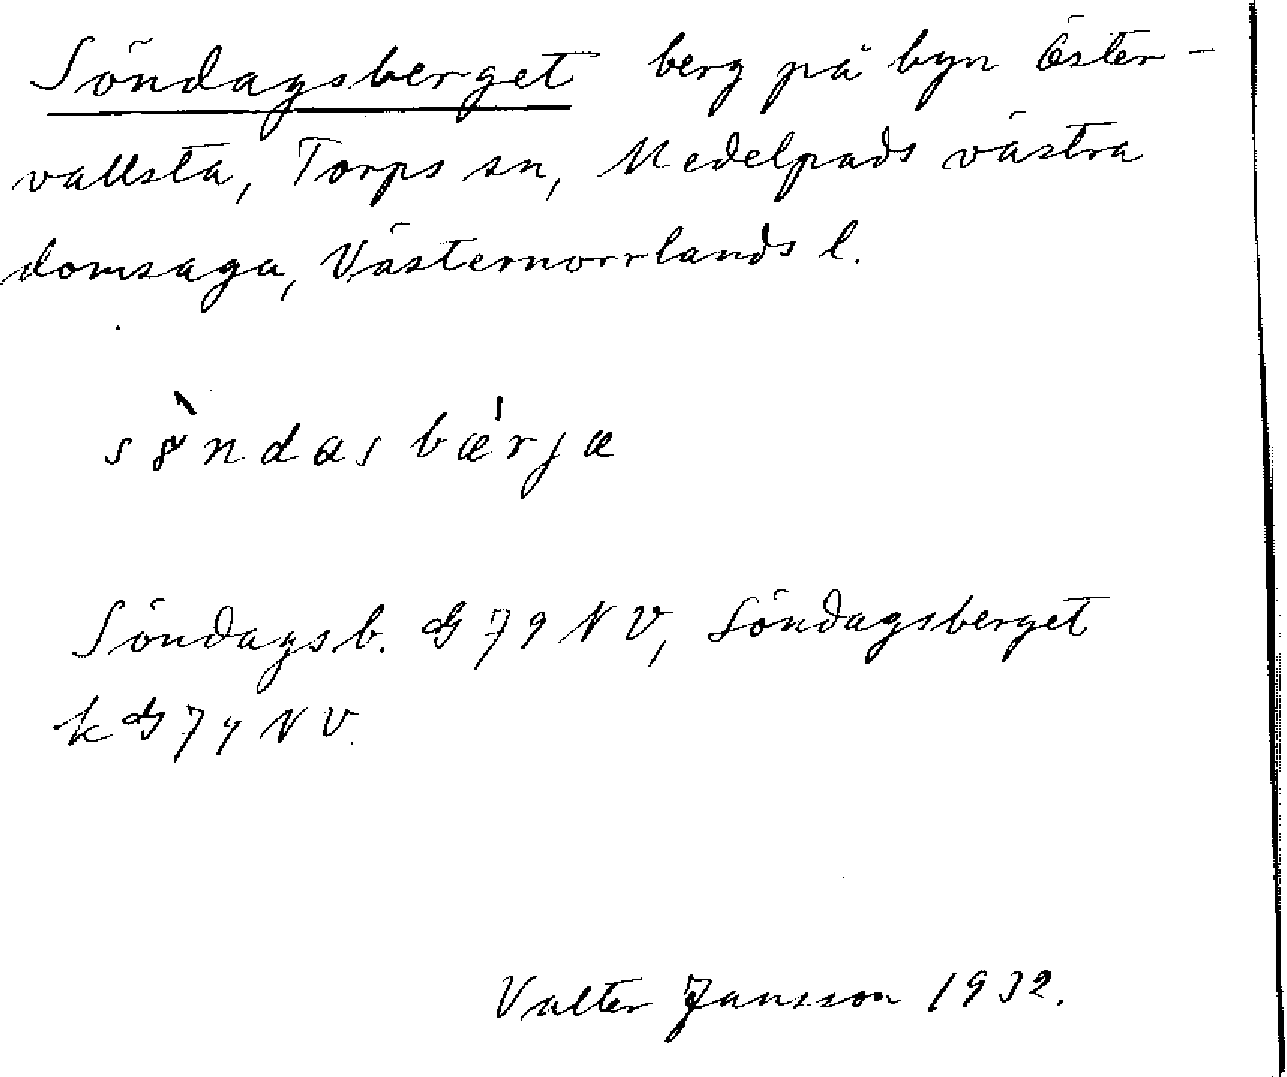 Söndagsberget berg på byn Öster-
vallsta, Torps sn, Medelpads västra
domsaga, Västernorrlands l.
sø̀ndasbæ̍rjæ
Söndagsb. G 79 NV, Söndagsberget
k G 79 NV.
Valter Jansson 1932.